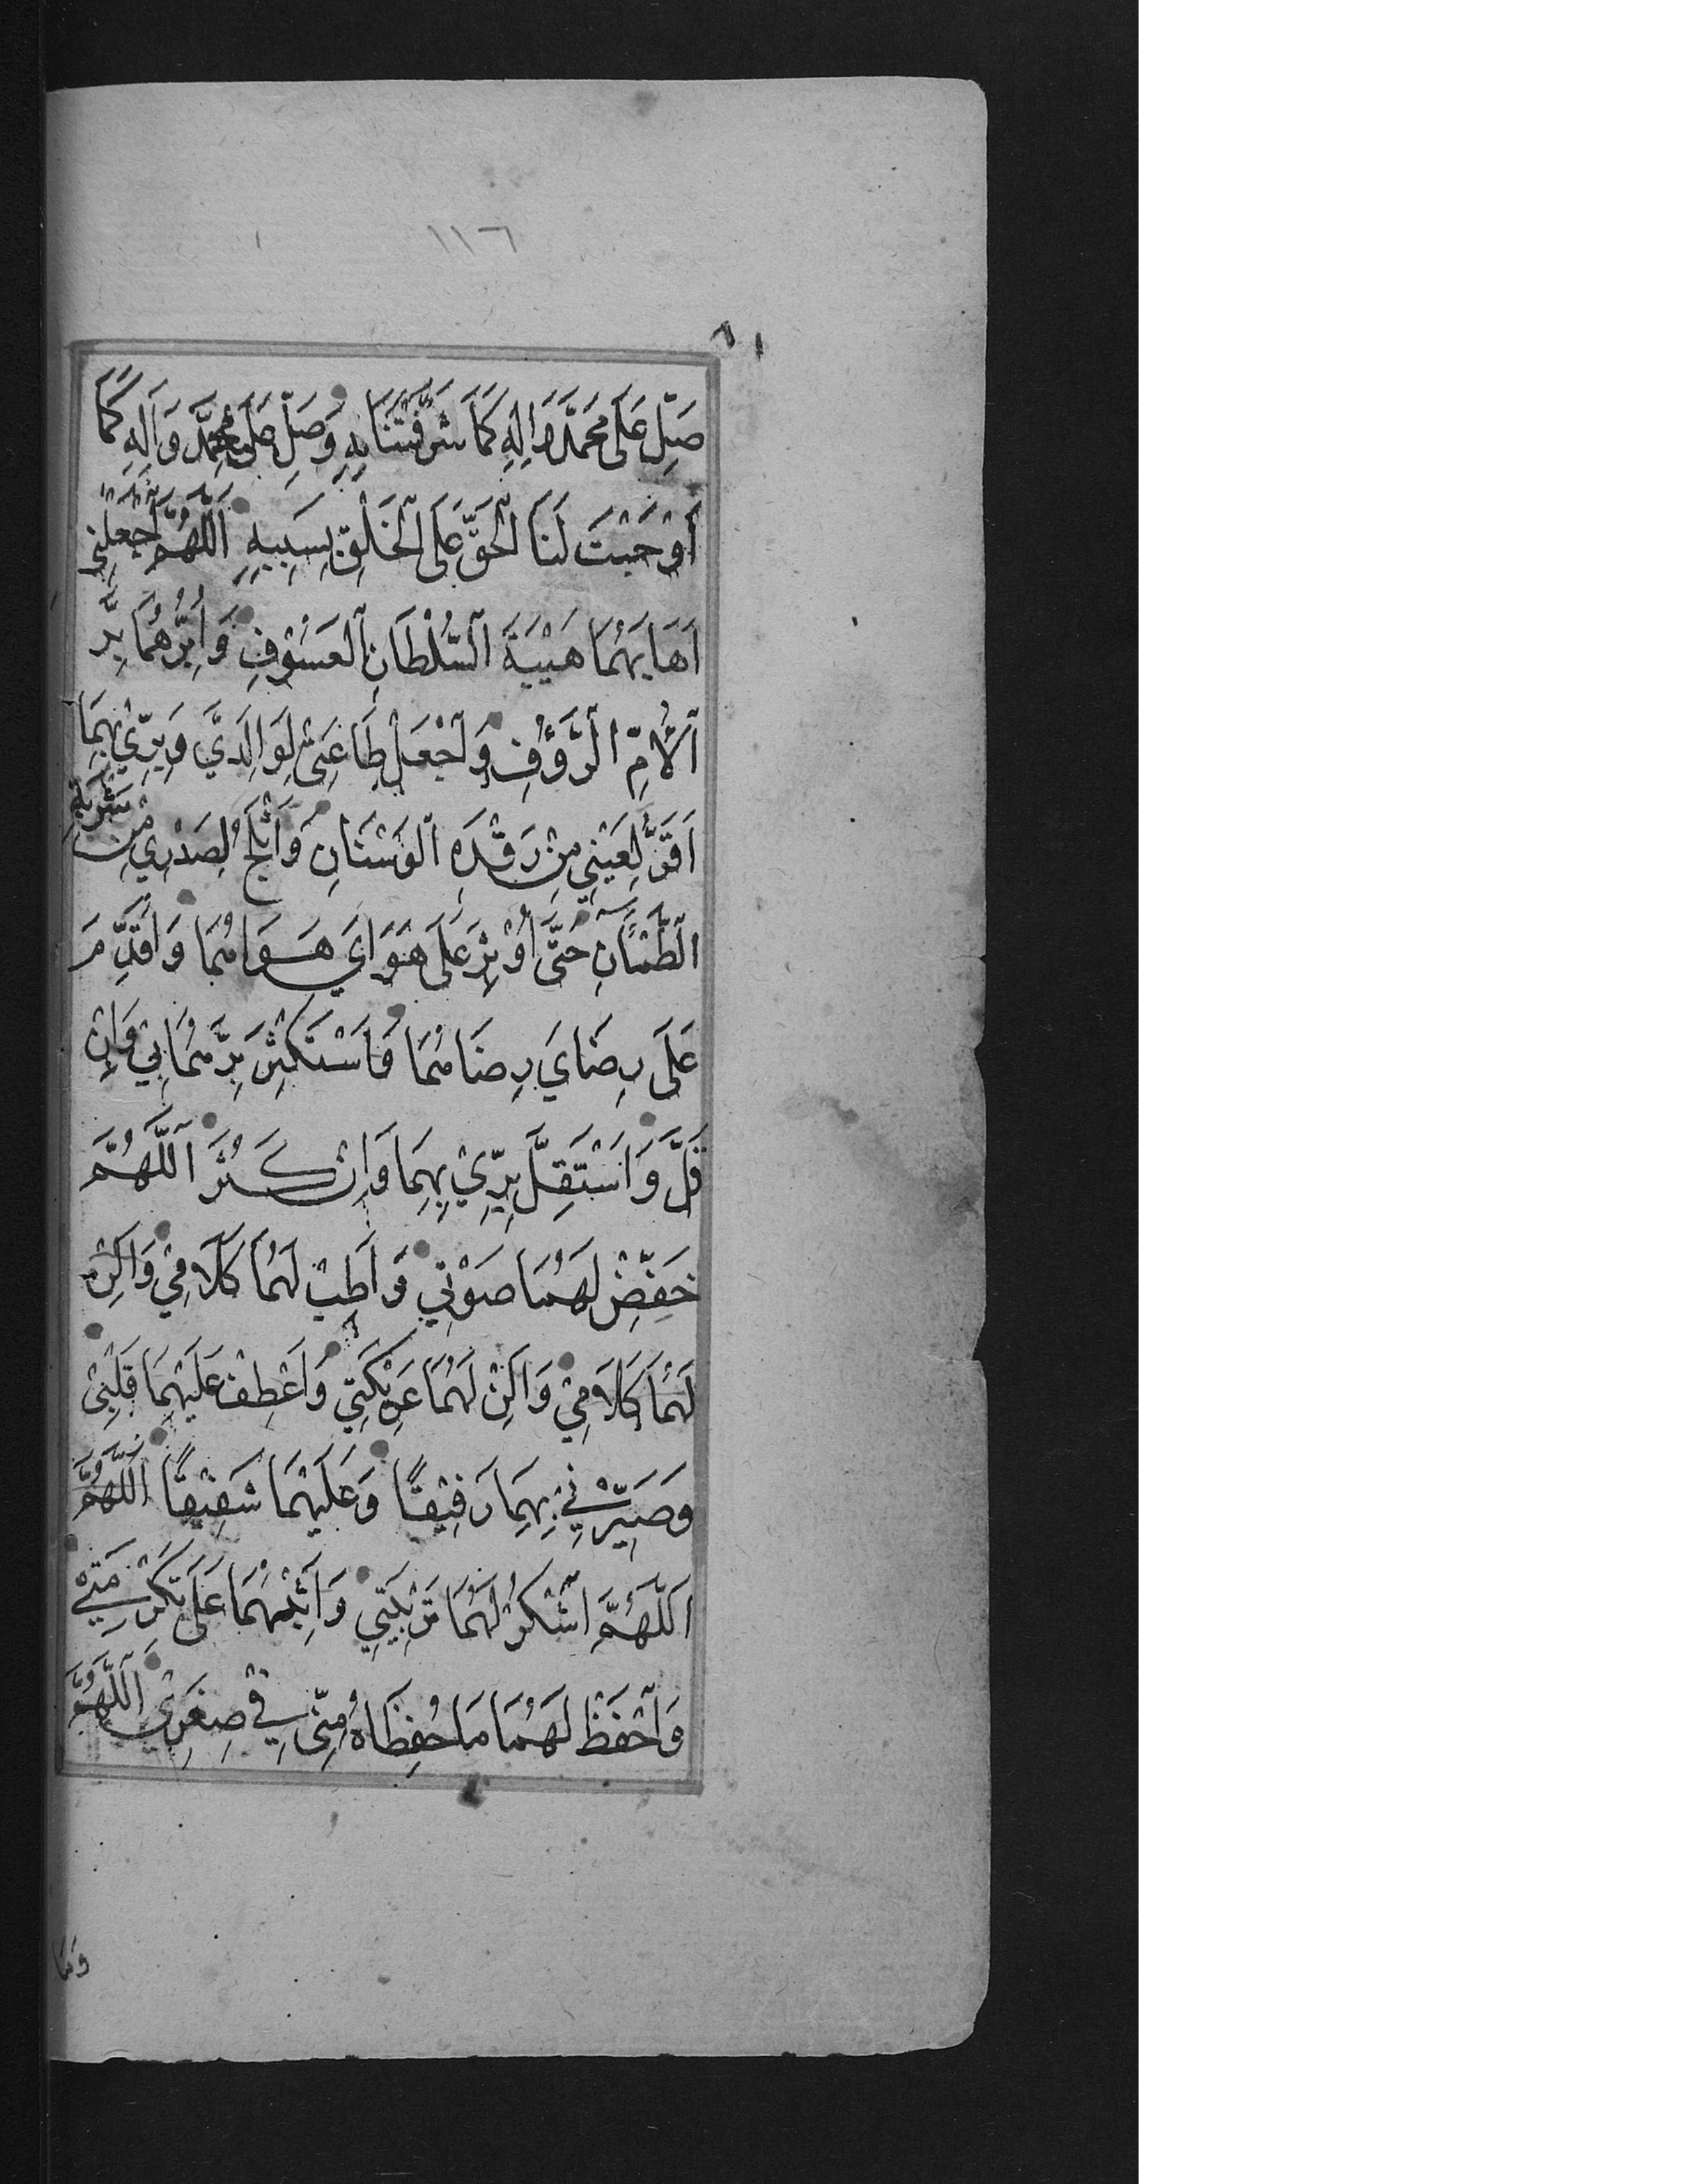 ١١٦
٦١
صَلِّ عَلَى مُحَمَّدٍ وَاٰلِهِ كَمَا شَرَّفْتَنَا بِهِ وَصَلِّ عَلَى مُحَمَّدٍ وَاٰلِهِ كَمَا
اَوْجَبْتَ لَنَا الْحَقَّ عَلَى الْخَلْقِ بِسَبَبِهِ اَللّٰهُمَّ اجْعَلْنِي
اَهَابُهُمَا هَيْبَةَ السُّلْطَانِ الْعَسُوْفِ وَاَبَرُّهُمَا بِرَّ
الْاُمِّ الرَّؤُفِ وَاجْعَلْ طَاعَتِي لِوَالِدَيَّ وَبِرِّيْ بِهِمَا
اَقَرَّ لِعَيْنِي مِنْ رَقْدَةِ الْوَسْنَانِ وَاَثْلَجَ لِصَدْرِيْ مِنْ شَرْبَةِ
الظَّمْاٰنِ حَتَّى اُوْثِرَ عَلَى هَوَايَ هَوَاهُمَا وَاُقَدِّمَ
عَلَى رِضَايَ رِضَاهُمَا وَاَسْتَكْثِرَ بِرَّهُمَا بِيْ وَاِنْ
قَلَّ وَاَسْتَقِلَّ بِرِّيْ بِهِمَا وَاِنْ كَثُرَ اَللّٰهُمَّ
خَفِّضْ لَهُمَا صَوْتِي وَاَطِبْ لَهُمَا كَلَامِيْ وَاَلِنْ
لَهُمَا كَلَامِيْ وَاَلِنْ لَهُمَا عَرِيْكَتِي وَاعْطِفْ عَلَيْهِمَا قَلْبِيْ
وَصَيِّرْنِيْ بِهِمَا رَفِيْقًا وَعَلَيْهِمَا شَفِيْقًا اَللّٰهُمَّ
اَللّٰهُمَّ اشْكُرْ لَهُمَا تَرْبِيَتِي وَاَثِبْهُمَا عَلَى تَكْرِمَتِيْ
وَاحْفَظْ لَهُمَا مَا حَفِظَاهُ مِنِّيْ فِيْ صِغَرِيْ اَللّٰهُمَّ
وَمَا